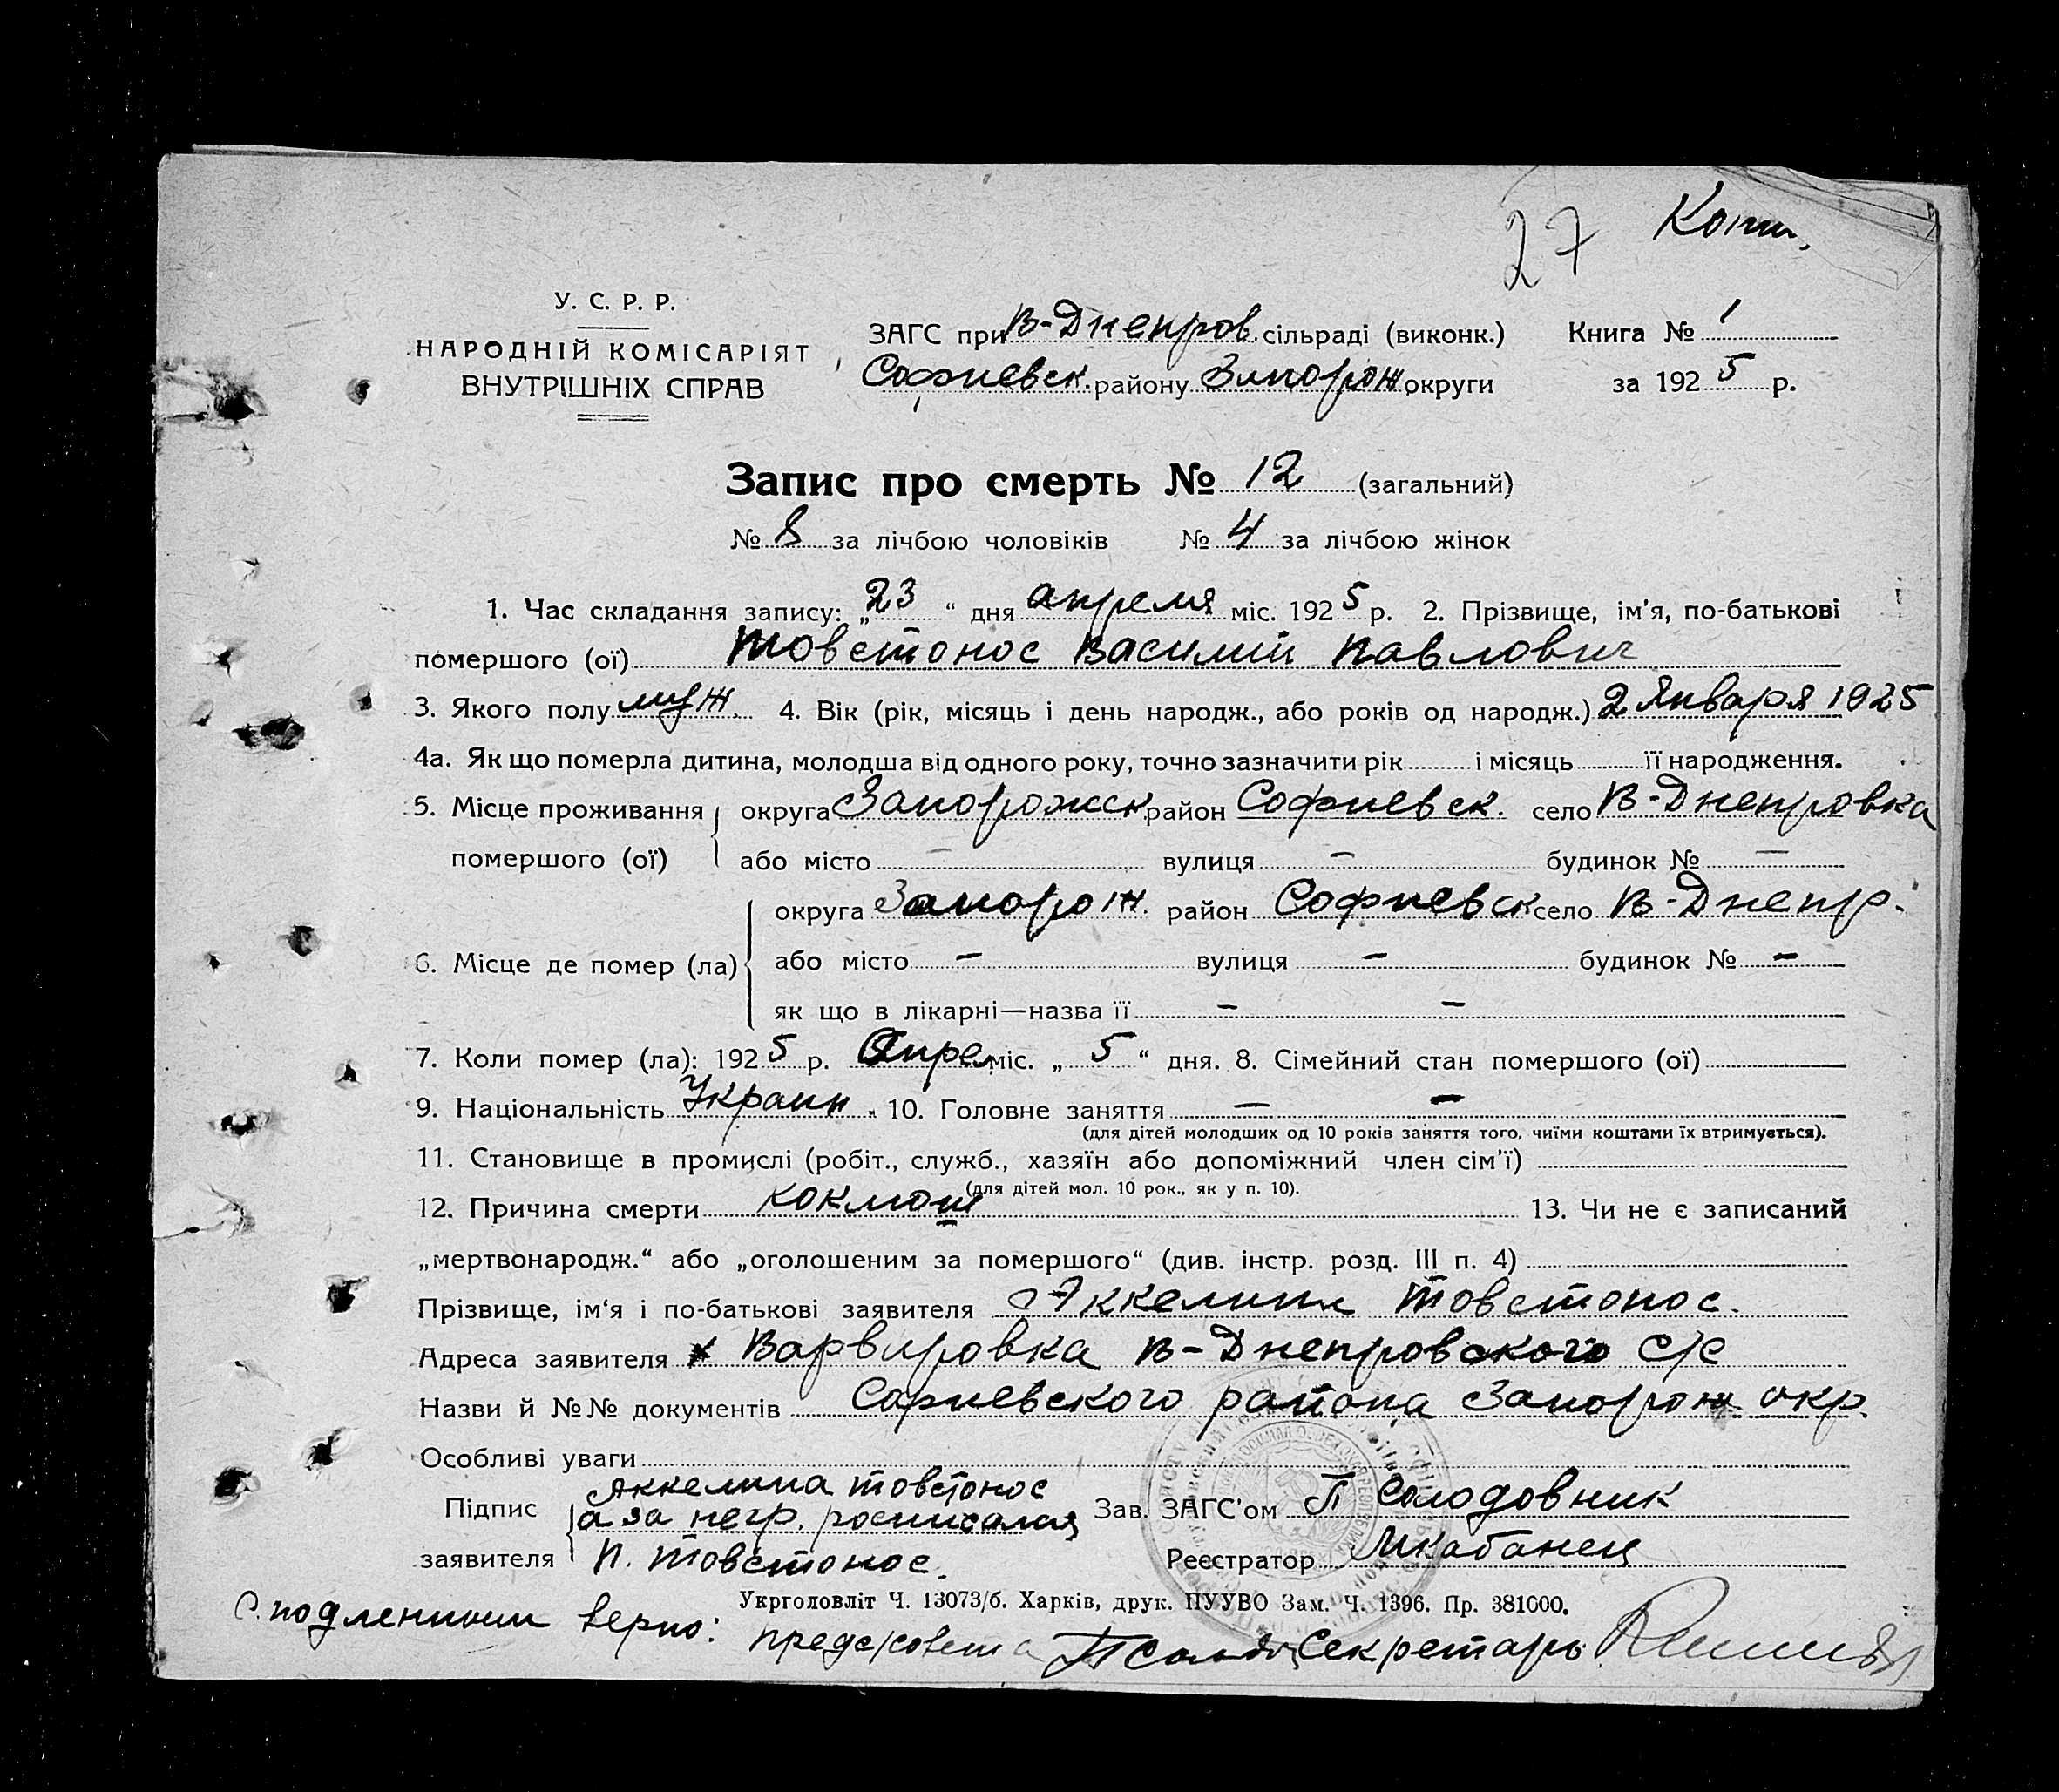 27 Копи,
У. С. Р. Р.
НАРОДНІЙ КОМІСАРІЯТ
ВНУТРІШНІХ СПРАВ
ЗАГС при В-Днепров. сільраді (виконк.)
Софиевск. району Запорож округи
Книга № 1
за 1925 р.
Запис про смерть № 12 (загальний)
№ 8 за лічбою чоловіків № 4 за лічбою жінок
1. Час складання запису: „23 “ дня апреля міс. 1925 р. 2. Прізвище, ім'я, по-батькові
помершого (ої) Товстонос Василий Павлович
3. Якого полу муж. 4. Вік (рік, місяць і день народж., або років од народж.) 2 Января 1925
4а. Як що померла дитина, молодша від одного року, точно зазначити рік і місяць її народження.
5. Місце проживання округа Запорожск. район Софиевск. село В-Днепровка
помершого (ої) або місто – вулиця – будинок № –
округа Запорож. район Софиевск село В-Днепр.
6. Місце де помер (ла) або місто – вулиця – будинок № –
як що в лікарні—назва її – –
7. Коли помер (ла): 1925 р. Апрел міс. „ 5 “ дня. 8. Сімейний стан помершого (ої)
9. Національність Украин. 10. Головне заняття – –
(для дітей молодших од 10 років заняття того, чиїми коштами їх втримується).
11. Становище в промислі (робіт., служб., хазяїн або допоміжний член сім'ї)
(для дітей мол. 10 рок., як у п. 10).
12. Причина смерти коклюш 13. Чи не є записаний
„мертвонародж.“ або „оголошеним за помершого“ (див. інстр. розд. III п. 4)
Прізвище, ім'я і по-батькові заявителя Аккелина Товстонос.
Адреса заявителя х Варваровка В-Днепровского с/с
Назви й №№ документів Софиевского района Запорож окр.
Особливі уваги
Підпис заявителя Аккелина Товстонос
а за негр. росписалая
П. Товстонос.
Зав. ЗАГС'ом П Солодовник
Реєстратор Мкабанец
Укрголовліт Ч. 13073/б. Харків, друк. ПУУВО Зам. Ч. 1396. Пр. 381000.
С подленным верно:
Секретарь